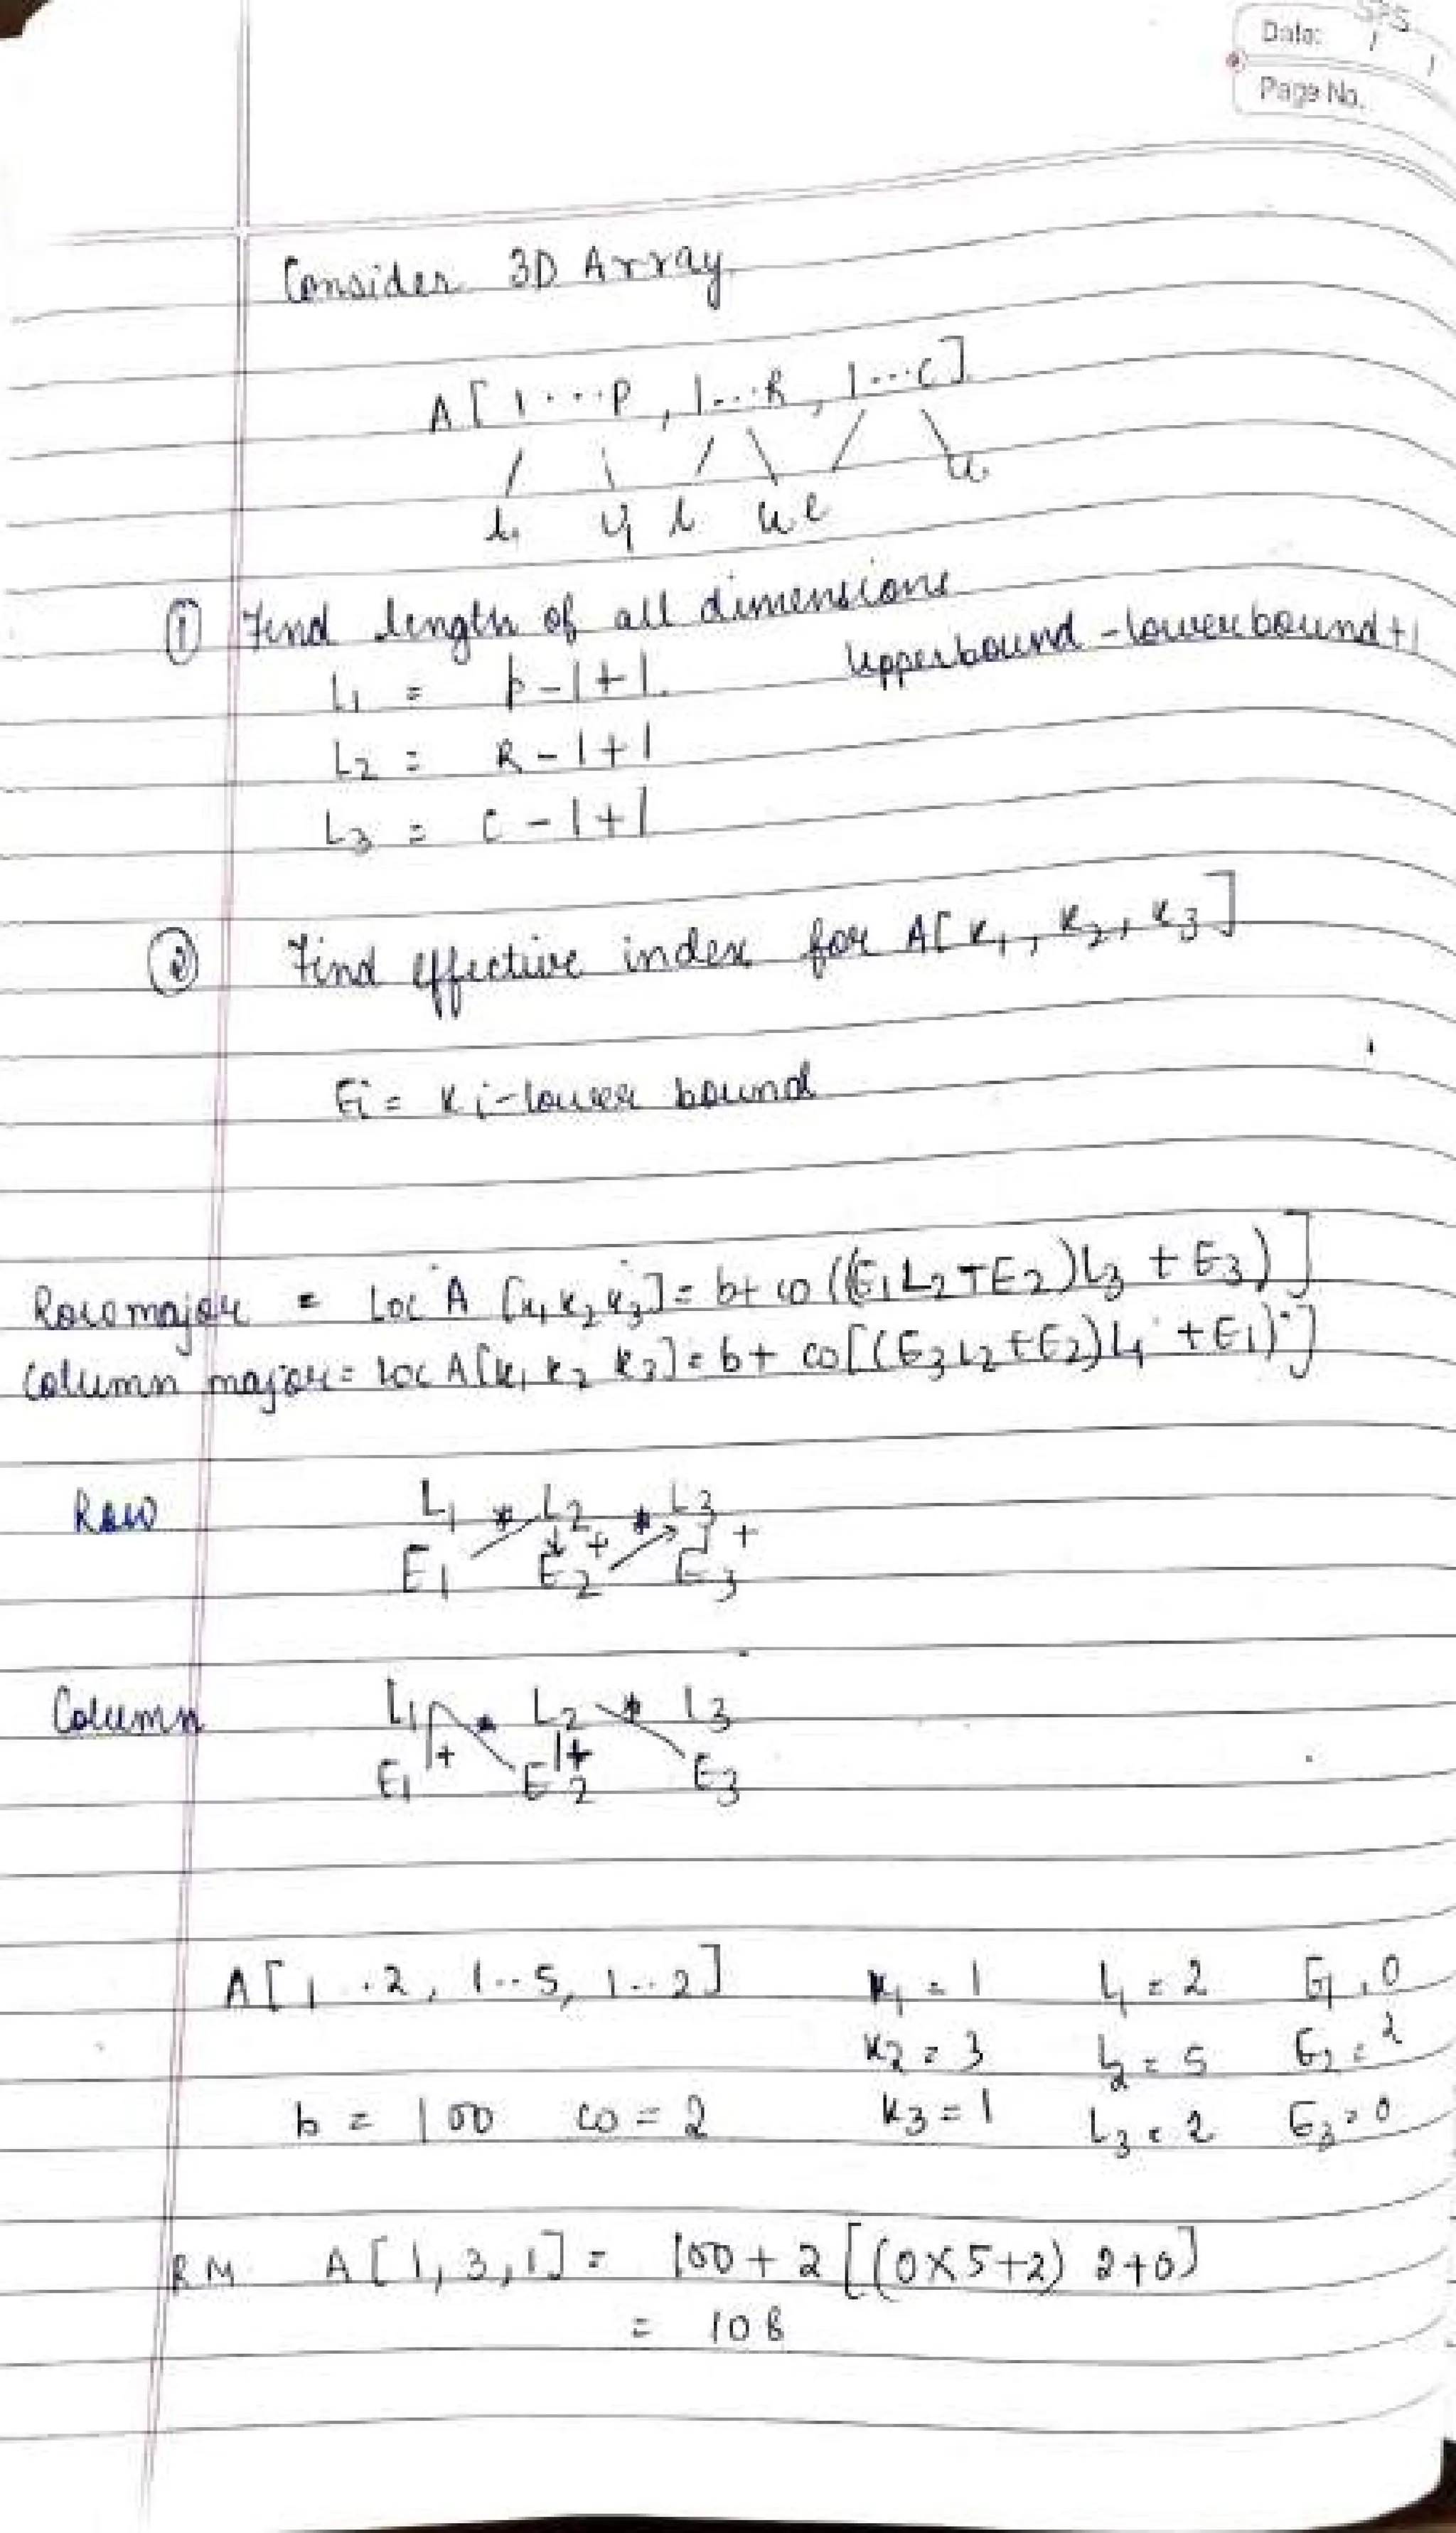 SPS
Date: / /
Page No.
Consider 3D Array
A [ 1 ....P , 1...R , 1...C ]
l u l u l u
① Find length of all dimensions
Upperbound - lowerbound+1
L1 = p-1+1
L2 = R-1+1
L3 = C-1+1
② Find effective index for A[ K1, K2, K3 ]
Ei = Ki - lower bound
Row major = Loc A [K1 K2 K3] = b+ω((E1L2+E2)L3 + E3)]
Column major = loc A[K1 K2 K3] = b+ ω[(E3L2+E2)L1 +E1)]
Row L1 * L2 * L3
+ +
E1 E2 E3
Column L1 * L2 * L3
+ +
E1 E2 E3
A[1..2, 1..5, 1..2] K1 = 1 L1 = 2 E1 = 0
K2 = 3 L2 = 5 E2 = 2
b = 100 ω = 2 K3 = 1 L3 = 2 E3 = 0
RM A[1,3,1] = 100+2[(0x5+2) 2+0]
= 108